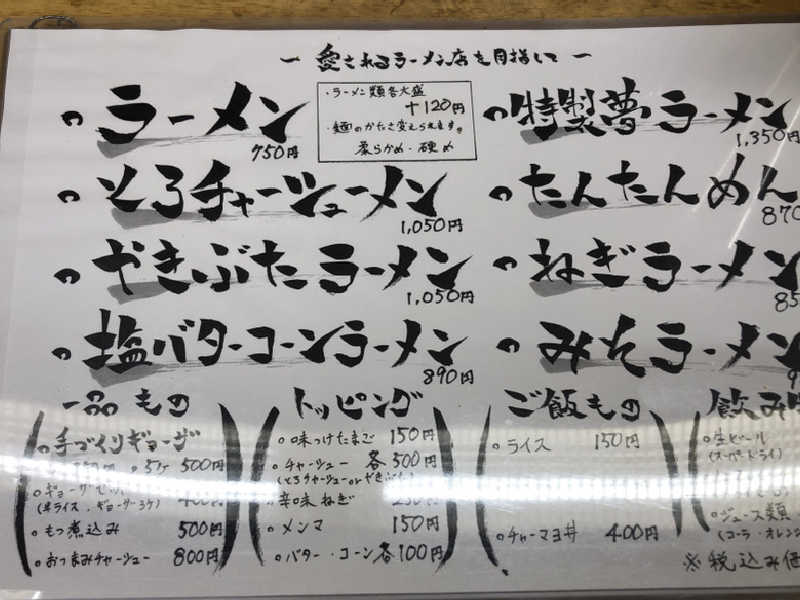 ー 愛されるラーメン店を目指して ー
ラーメン
750円
・ラーメン類各大盛
+120円
・麺のかたさ変えられます。
柔らかめ・硬め
特製夢ラーメン
1,350円
とろチャーシューメン
1,050円
たんたんめん
870
やきぶたラーメン
1,050円
ねぎラーメン
85
塩バターコーンラーメン
890円
みそラーメン
一品もの
手づくりギョーザ
5ケ 500円
ギョーザセット
(半ライス、ギョーザ3ケ) 400円
もつ煮込み 500円
おつまみチャーシュー 800円
トッピング
味つけたまご 150円
チャーシュー 各500円
(とろチャーシューorやきぶた)
辛味ねぎ
メンマ 150円
バター・コーン 各100円
ご飯もの
ライス 150円
チャーマヨ丼 400円
飲み物
生ビール
(スーパードライ)
ジュース類
(コーラ・オレンジ
※税込み価